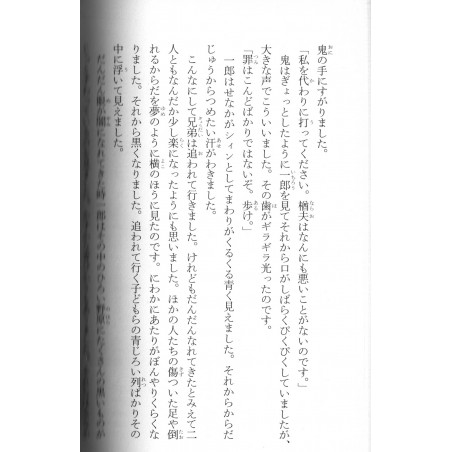 鬼の手にすがりました。
「私を代わりに打ってください。楢夫はなんにも悪いことがないのです。」
鬼はぎょっとしたように一郎を見てそれから口がしばらくびくびくしていましたが、
大きな声でこういいました。その歯がギラギラ光ったのです。
「罪はこんどばかりではないぞ。歩け。」
一郎はせなかがシィンとしてまわりがくるくる青く見えました。それからからだ
じゅうからつめたい汗がわきました。
こんなにして兄弟は追われて行きました。けれどもだんだんなれてきたとみえて二
人ともなんだか少し楽になったようにも思いました。ほかの人たちの傷ついた足や倒
れるからだを夢のように横のほうに見たのです。にわかにあたりがぼんやりくらくな
りました。それから黒くなりました。追われて行く子どもらの青じろい列ばかりその
中に浮いて見えました。
だんだん眼が闇になれてきた時一郎はその中のひろい野原にたくさんの黒いものが